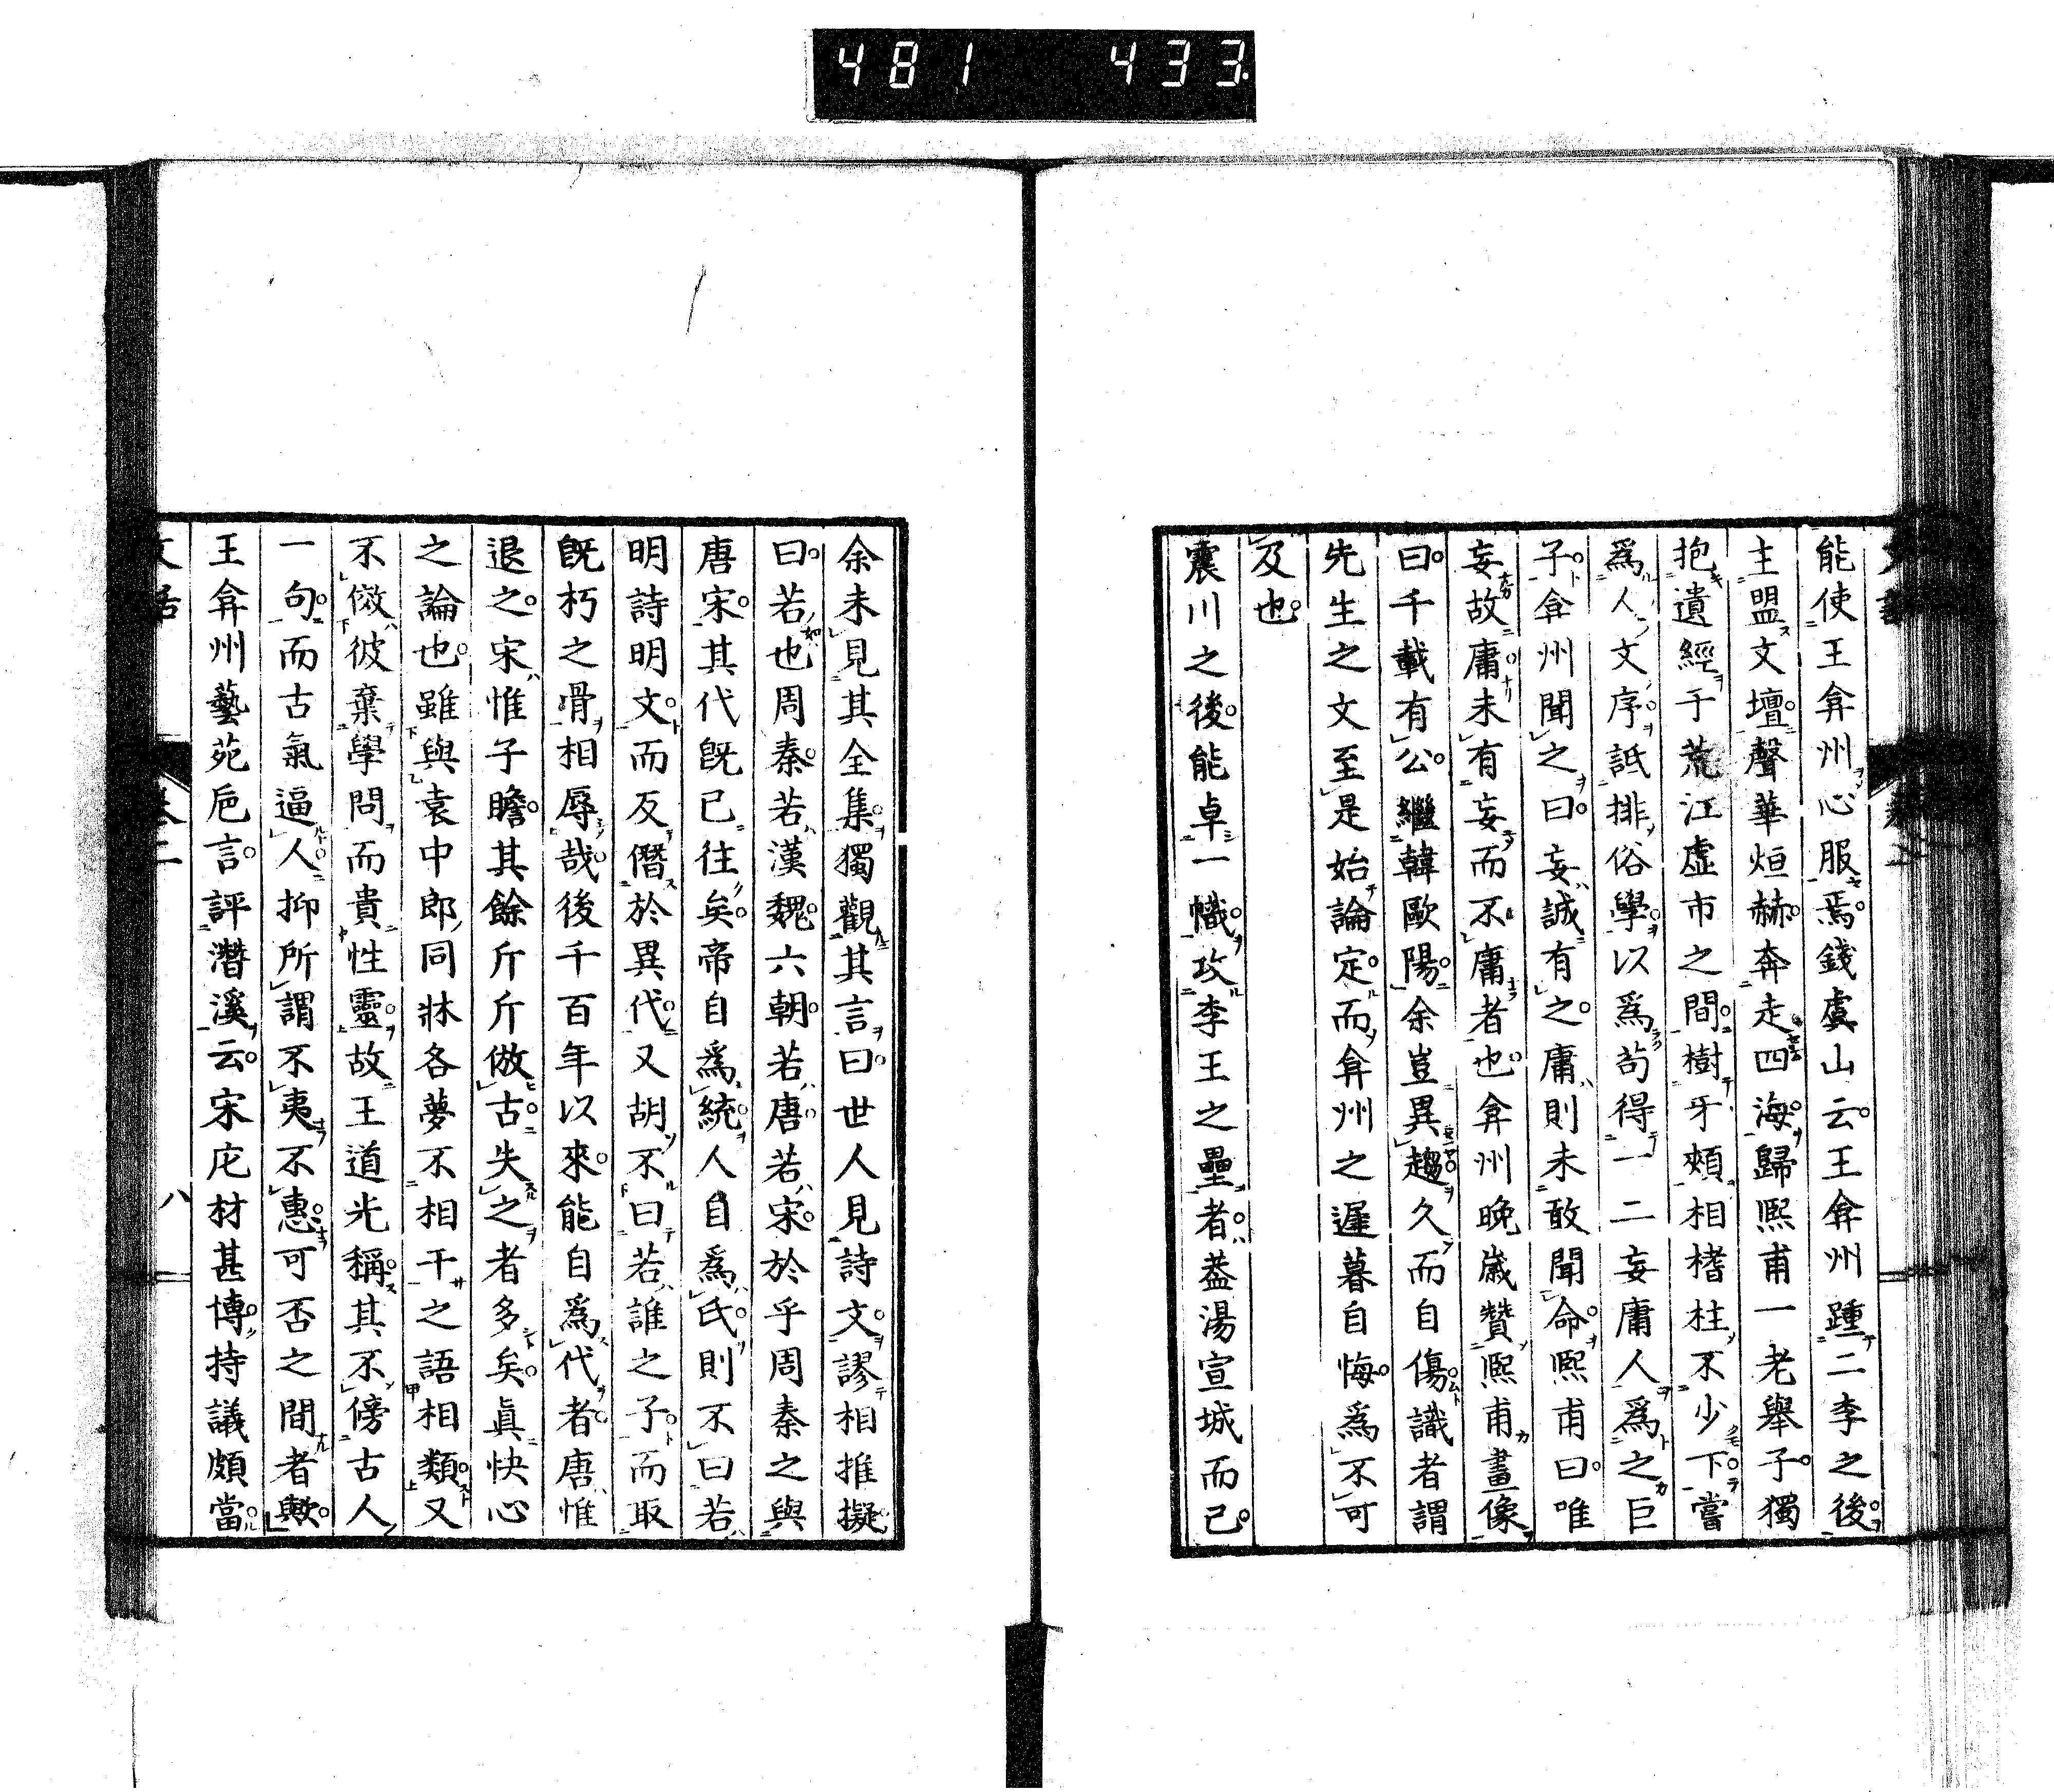 481 433
能使王弇州心服焉錢虞山云王弇州踵二李之後
主盟文壇聲華烜赫奔走四海歸熙甫一老舉子獨
抱遺經于荒江虛市之間樹牙頰相榰柱不少下嘗
爲人文序詆排俗學以爲苟得一二妄庸人爲之巨
子弇州聞之曰妄誠有之庸則未敢聞命熙甫曰唯
妄故庸未有妄而不庸者也弇州晚歲贊熙甫畫像
曰千載有公繼韓歐陽余豈異趨久而自傷識者謂
先生之文至是始論定而弇州之遲暮自悔爲不可
及也
震川之後能卓一幟攻李王之壘者葢湯宣城而已
余未見其全集獨觀其言曰世人見詩文謬相推擬
曰若也周秦若漢魏六朝若唐若宋於乎周秦之與
唐宋其代旣已往矣帝自爲統人自爲氏則不曰若
明詩明文而反僭於異代又胡不曰若誰之子而取
旣朽之骨相辱哉後千百年以來能自爲代者唐惟
退之宋惟子瞻其餘斤斤倣古失之者多矣眞快心
之論也雖與袁中郎同牀各夢不相干之語相類又
不倣彼棄學問而貴性靈故王道光稱其不傍古人
一句而古氣逼人抑所謂不夷不惠可否之間者歟
王弇州藝苑巵言評潛溪云宋庀材甚博持議頗當
文話 卷二 八